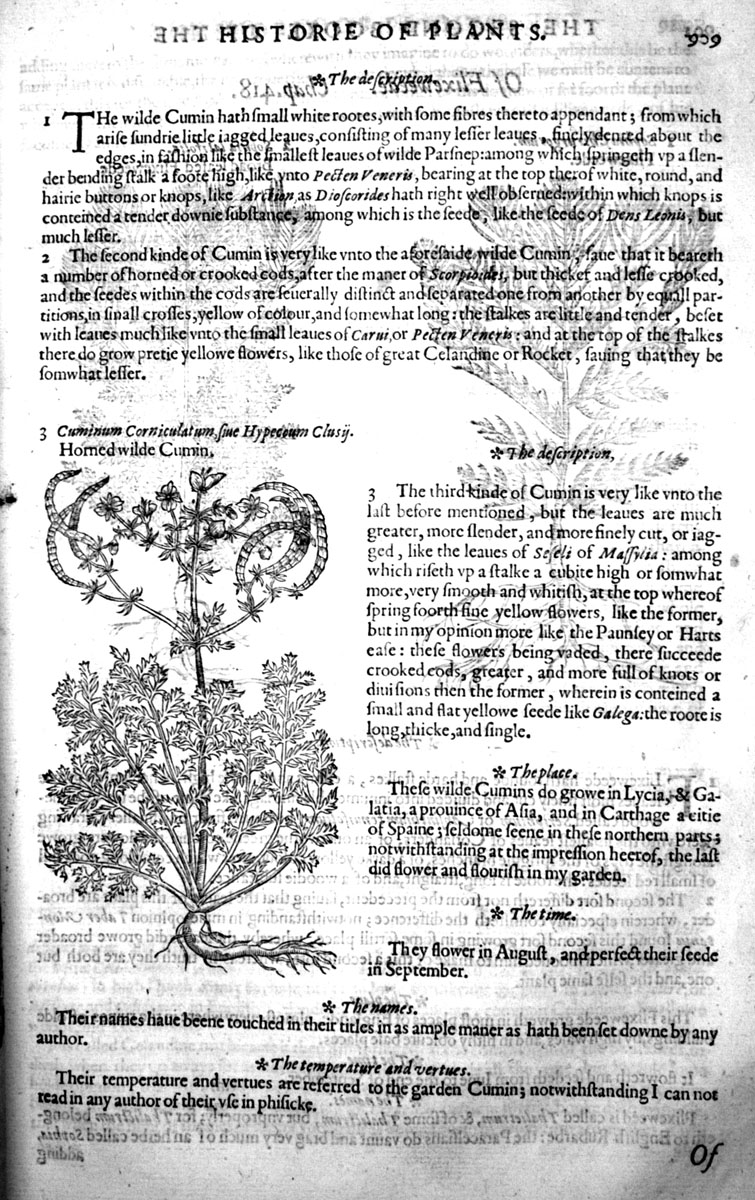 HISTORIE OF PLANTS. 909
❋ The deſcription.
1 THe wilde Cumin hath ſmall white rootes, with ſome fibres thereto appendant; from which
ariſe ſundrie little iagged leaues, conſiſting of many leſſer leaues, finely dented about the
edges, in faſhion like the ſmalleſt leaues of wilde Parſnep: among which ſpringeth vp a ſlen-
der bending ſtalk a foote high, like vnto Pecten Veneris, bearing at the top therof white, round, and
hairie buttons or knops, like Arction, as Dioſcorides hath right well obſerued: within which knops is
conteined a tender downie ſubſtance, among which is the ſeede, like the ſeede of Dens Leonis, but
much leſſer.
2 The ſecond kinde of Cumin is very like vnto the aforeſaide wilde Cumin, ſaue that it beareth
a number of horned or crooked cods, after the maner of Scorpioides, but thicker and leſſe crooked,
and the ſeedes within the cods are ſeuerally diſtinct and ſeparated one from another by equall par-
titions, in ſmall croſſes, yellow of colour, and ſomewhat long: the ſtalkes are little and tender, beſet
with leaues much like vnto the ſmall leaues of Carui, or Pecten Veneris: and at the top of the ſtalkes
there do grow pretie yellowe flowers, like thoſe of great Celandine or Rocket, ſauing that they be
ſomwhat leſſer.
3 Cuminum Corniculatum, ſiue Hypecoum Cluſij.
Horned wilde Cumin.
❋ The deſcription,
3 The third kinde of Cumin is very like vnto the
laſt before mentioned, but the leaues are much
greater, more ſlender, and more finely cut, or iag-
ged, like the leaues of Seſeli of Maſſylia: among
which riſeth vp a ſtalke a cubite high or ſomwhat
more, very ſmooth and whitiſh, at the top whereof
ſpring foorth fine yellow flowers, like the former,
but in my opinion more like the Paunſey or Harts
eaſe: theſe flowers being vaded, there ſucceede
crooked cods, greater, and more full of knots or
diuiſions then the former, wherein is conteined a
ſmall and flat yellowe ſeede like Galega: the roote is
long, thicke, and ſingle.
❋ The place.
Theſe wilde Cumins do growe in Lycia, & Ga-
latia, a prouince of Aſia, and in Carthage a citie
of Spaine; ſeldome ſeene in theſe northern parts;
notwithſtanding at the impreſſion heerof, the laſt
did flower and flouriſh in my garden.
❋ The time.
They flower in Auguſt, and perfect their ſeede
in September.
❋ The names.
Their names haue beene touched in their titles in as ample maner as hath been ſet downe by any
author.
❋ The temperature and vertues.
Their temperature and vertues are referred to the garden Cumin; notwithſtanding I can not
read in any author of their vſe in phiſicke.
Of